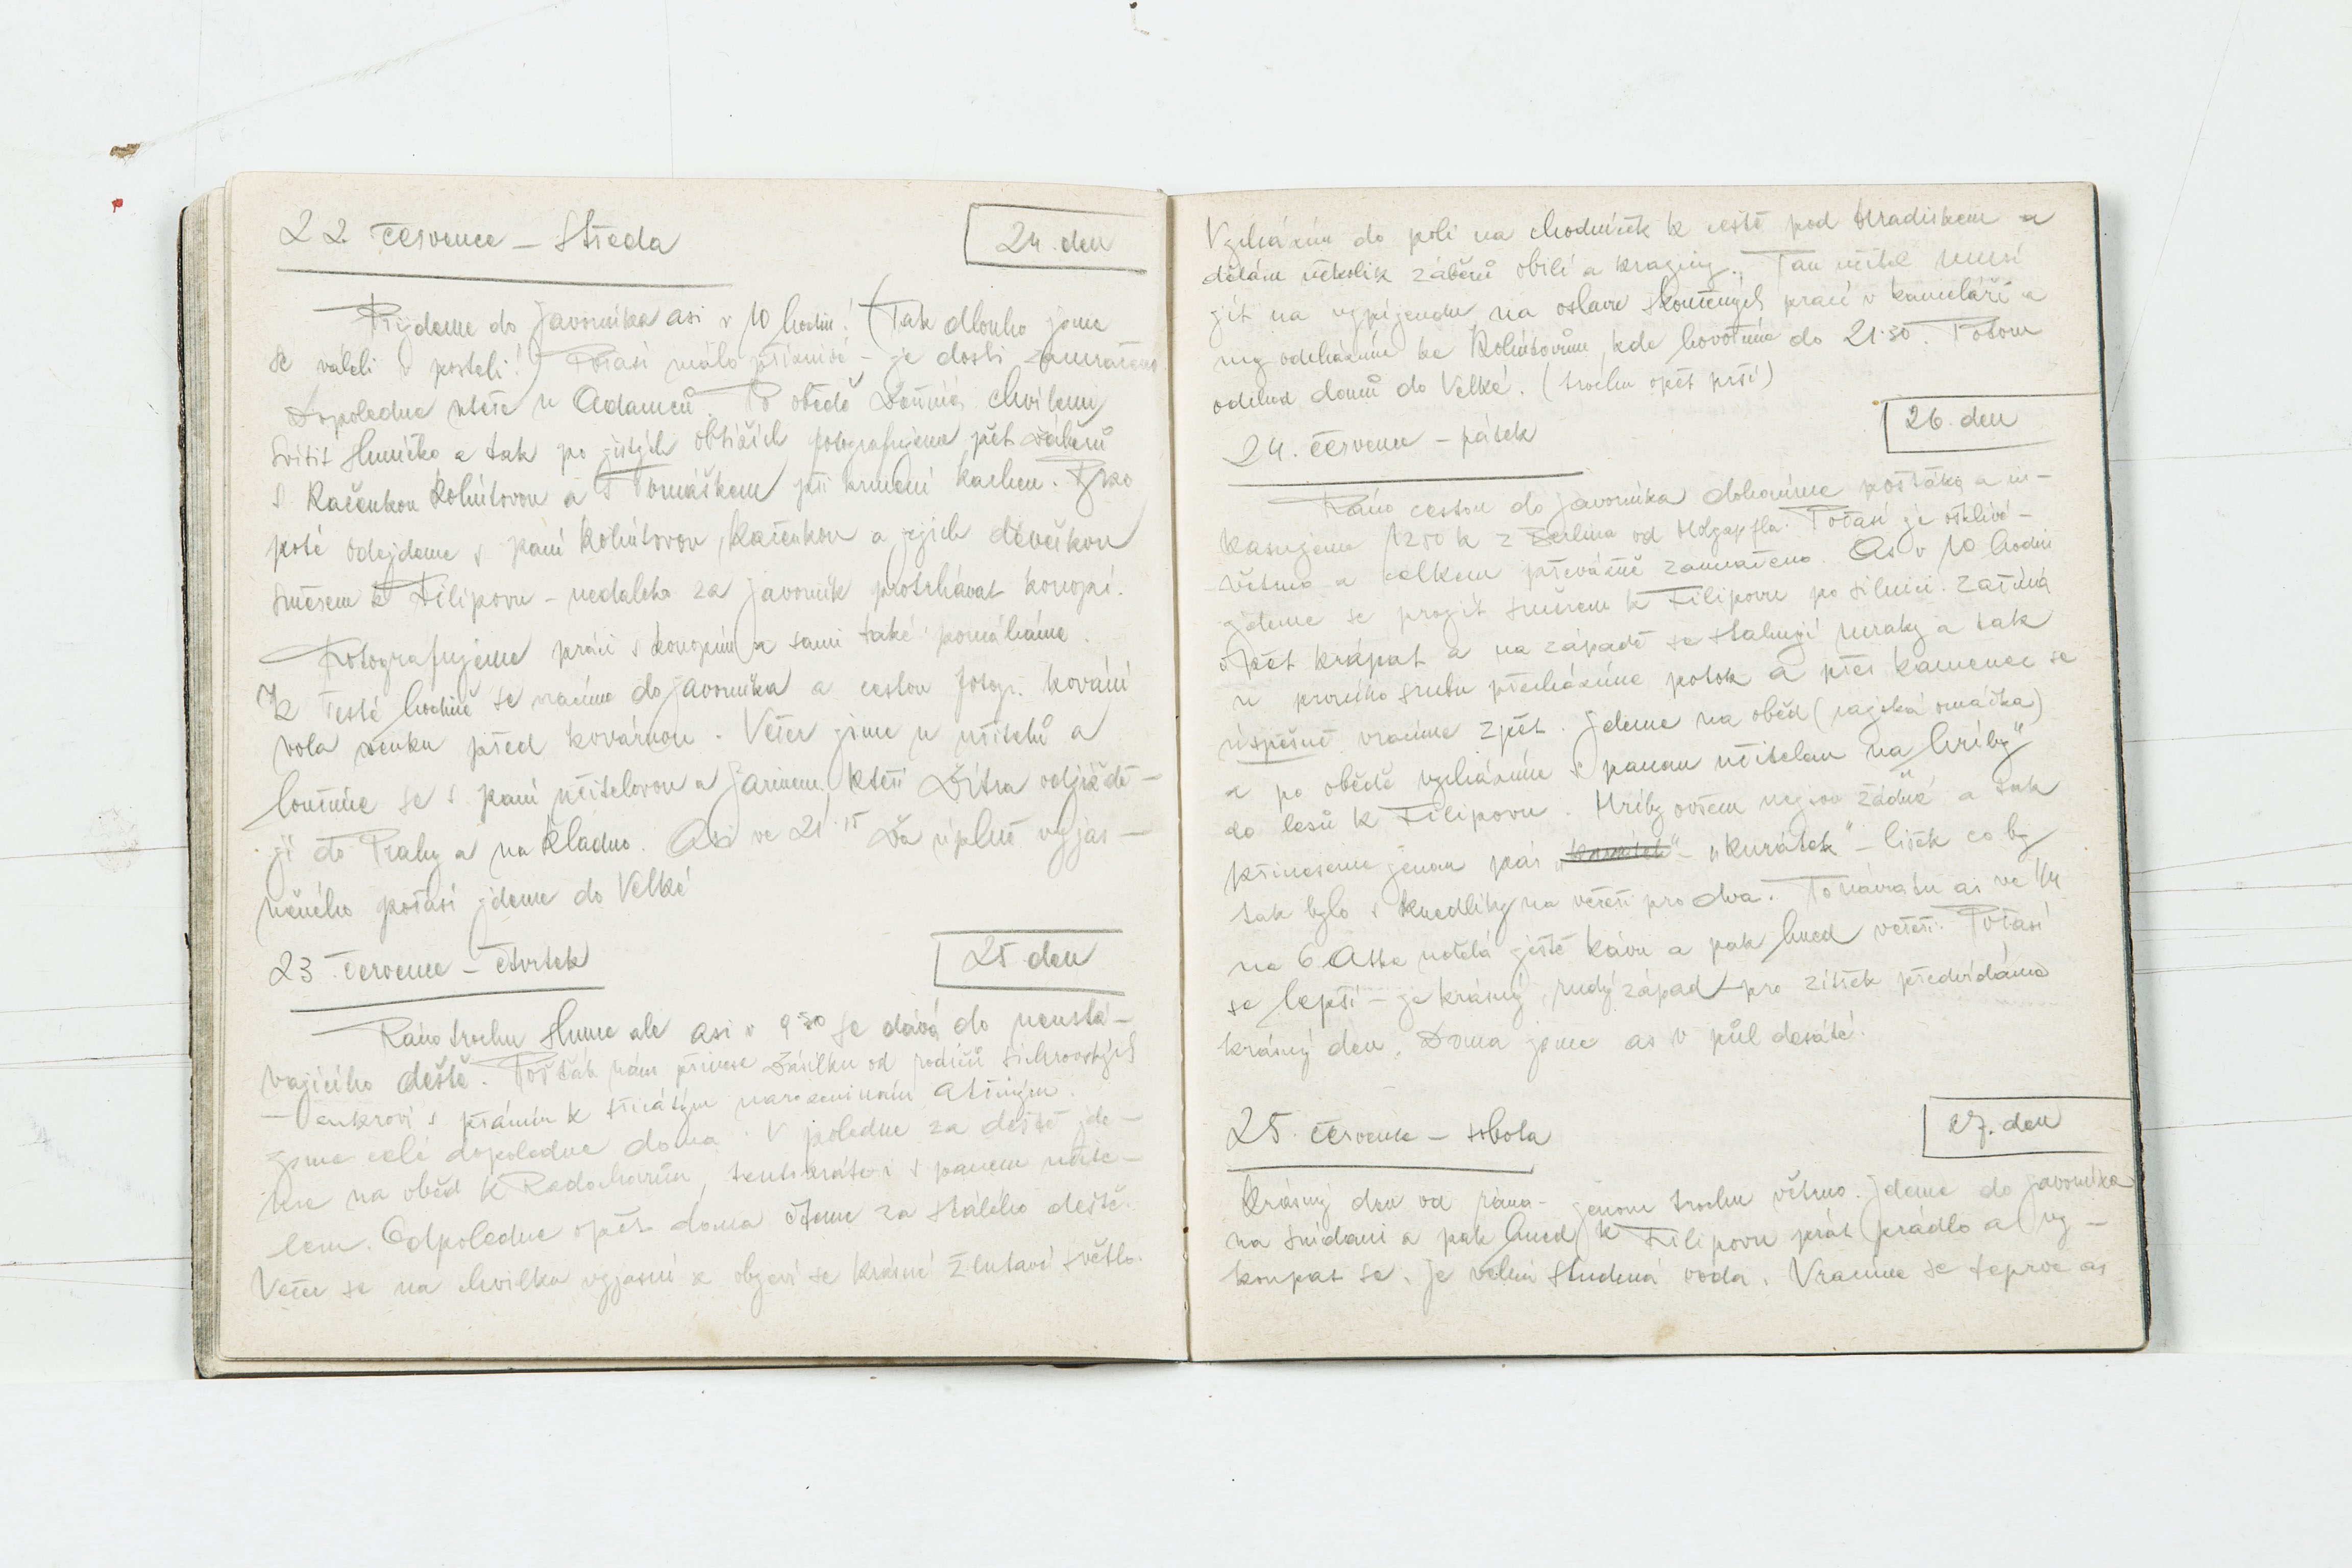 22. července – středa
24. den
Přijdeme do Javorníka asi v 10 hodin! (Tak dlouho jsme
se váleli v posteli!) Počasí málo příznivé – je dosti zamračeno.
Dopoledne u Adamců. Po obědě začíná chvílemi
svítit sluníčko a tak po jistých obtížích fotografujeme pět záběrů
s Kačenkou Kohútovou a s Tomáškem při krmení kachen. Brzo
poté odejdeme s paní Kohútovou, Kačenkou a jejich děvečkou
směrem k Filipovu – nedaleko za Javorník protrhávat konopí.
Fotografujeme práci s konopím a sami také pomáháme.
K šesté hodině se vracíme do Javorníka a cestou fotogr. kování
vola venku před kovárnou. Večer jíme u učitelů a
loučíme se s paní učitelovou a Jarinem, kteří zítra odjíždě-
jí do Prahy a na Kladno. Asi ve 21.15 za úplně vyjas-
něného počasí jdeme do Velké
23. července – čtvrtek
25. den
Ráno trochu slunce ale asi v 9 30 se dává do neustá-
vajícího deště. Pošťák nám přinese zásilku od rodičů
– cukroví s přáním k třicátým narozeninám
jsme celé dopoledne doma. V poledne za deště jde-
me na oběd k Radochovům, tentokráte i s panem učite-
lem. Odpoledne opět doma čteme za stálého deště.
Večer se na chvilku vyjasní a objeví se krásné žlutavé světlo.
Vycházíme do polí na chodníček k cestě pod Hradiskem a
dělám několik záběrů obilí a krajiny. Pan učitel musí
jít na vypíjendu na oslavu skončených prací v kanceláři a
my odcházíme ke Kohútovům, kde hovoříme do 21.30. Potom
odchod domů do Velké. (trochu opět prší)
24. července – pátek
26. den
Ráno cestou do Javorníka dohoníme pošťáka a in-
kasujeme 1250 k z Berlina od Holzapfla. Počasí je ošklivé –
větrno a celkem převážně zamračeno. As v 10 hodin
jdeme se projít směrem k Filipovu po silnici. Začíná
opět krápat a na západě se stahují mraky a tak
u prvního srubu přecházíme potok a přes kamenec se
úspěšně vracíme zpět. Jdeme na oběd (rajská omáčka)
a po obědě vycházíme s panem učitelem „na hríby"
do lesů k Filipovu. Hríby ovšem nejsou žádné a tak
přineseme jenom pár „kurátek" – „kurátek" – lišek co by
tak bylo s knedlíky na večeři pro dva. Po návratu as ve 1/4
na 6 udělá ještě kávu a pak hned večeři. Počasí
se lepší – je krásný, rudý západ – pro zítřek předvídáme
krásný den. Doma jsme as v půl desáté.
25. července – sobota
27. den
Krásný den od rána – jenom trochu větrno. Jdeme do Javorníka
na snídani a pak hned k Filipovu prát prádlo a vy-
koupat se. Je velmi studená voda. Vracíme se teprve as